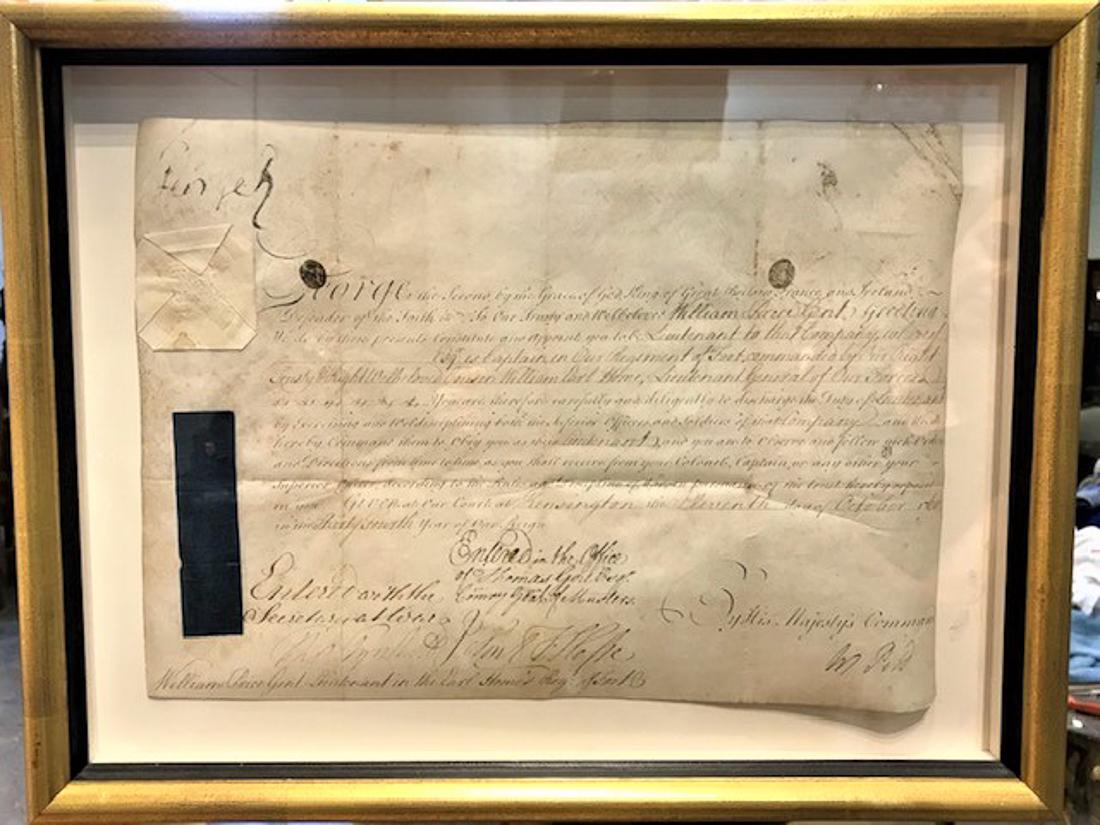 George R
George the Second, by the Grace of God, King of Great Britain, France, and Ireland,
Defender of the Faith &c. To Our Trusty and Welbeloved William Gent Greeting
We do by these presents Constitute and appoint you to be Lieutenant to that Company, whereof
Esqr. is Captain in Our Regiment of Foot, commanded by Our Right
Trusty & Right Welbeloved Cousin William Earl Home, Lieutenant General of Our Forces
You are therefore carefully and diligently to discharge the Duty of Lieutenant
by Exercising and Well disciplining both the Inferior Officers and Soldiers of that Company, and We do
hereby Command them to Obey you as their Lieutenant, and you are to Observe and follow such Orders
and Directions from time to time, as you shall receive from your Colonel, Captain, or any other your
Superior Officer, according to the Rules and Discipline of War in pursuance of the trust hereby reposed
in you. Given at Our Court at Kensington the Eleventh day of October
in the Thirty fourth Year of Our Reign
Entered in the Office
of Thomas Gore Esqr.
Comry Genl. of Musters.
Enter'd with the
Secretary at War
By His Majesty's Command
W Pitt
William Gent Lieutenant in the Earl Home's Regt. of Foot